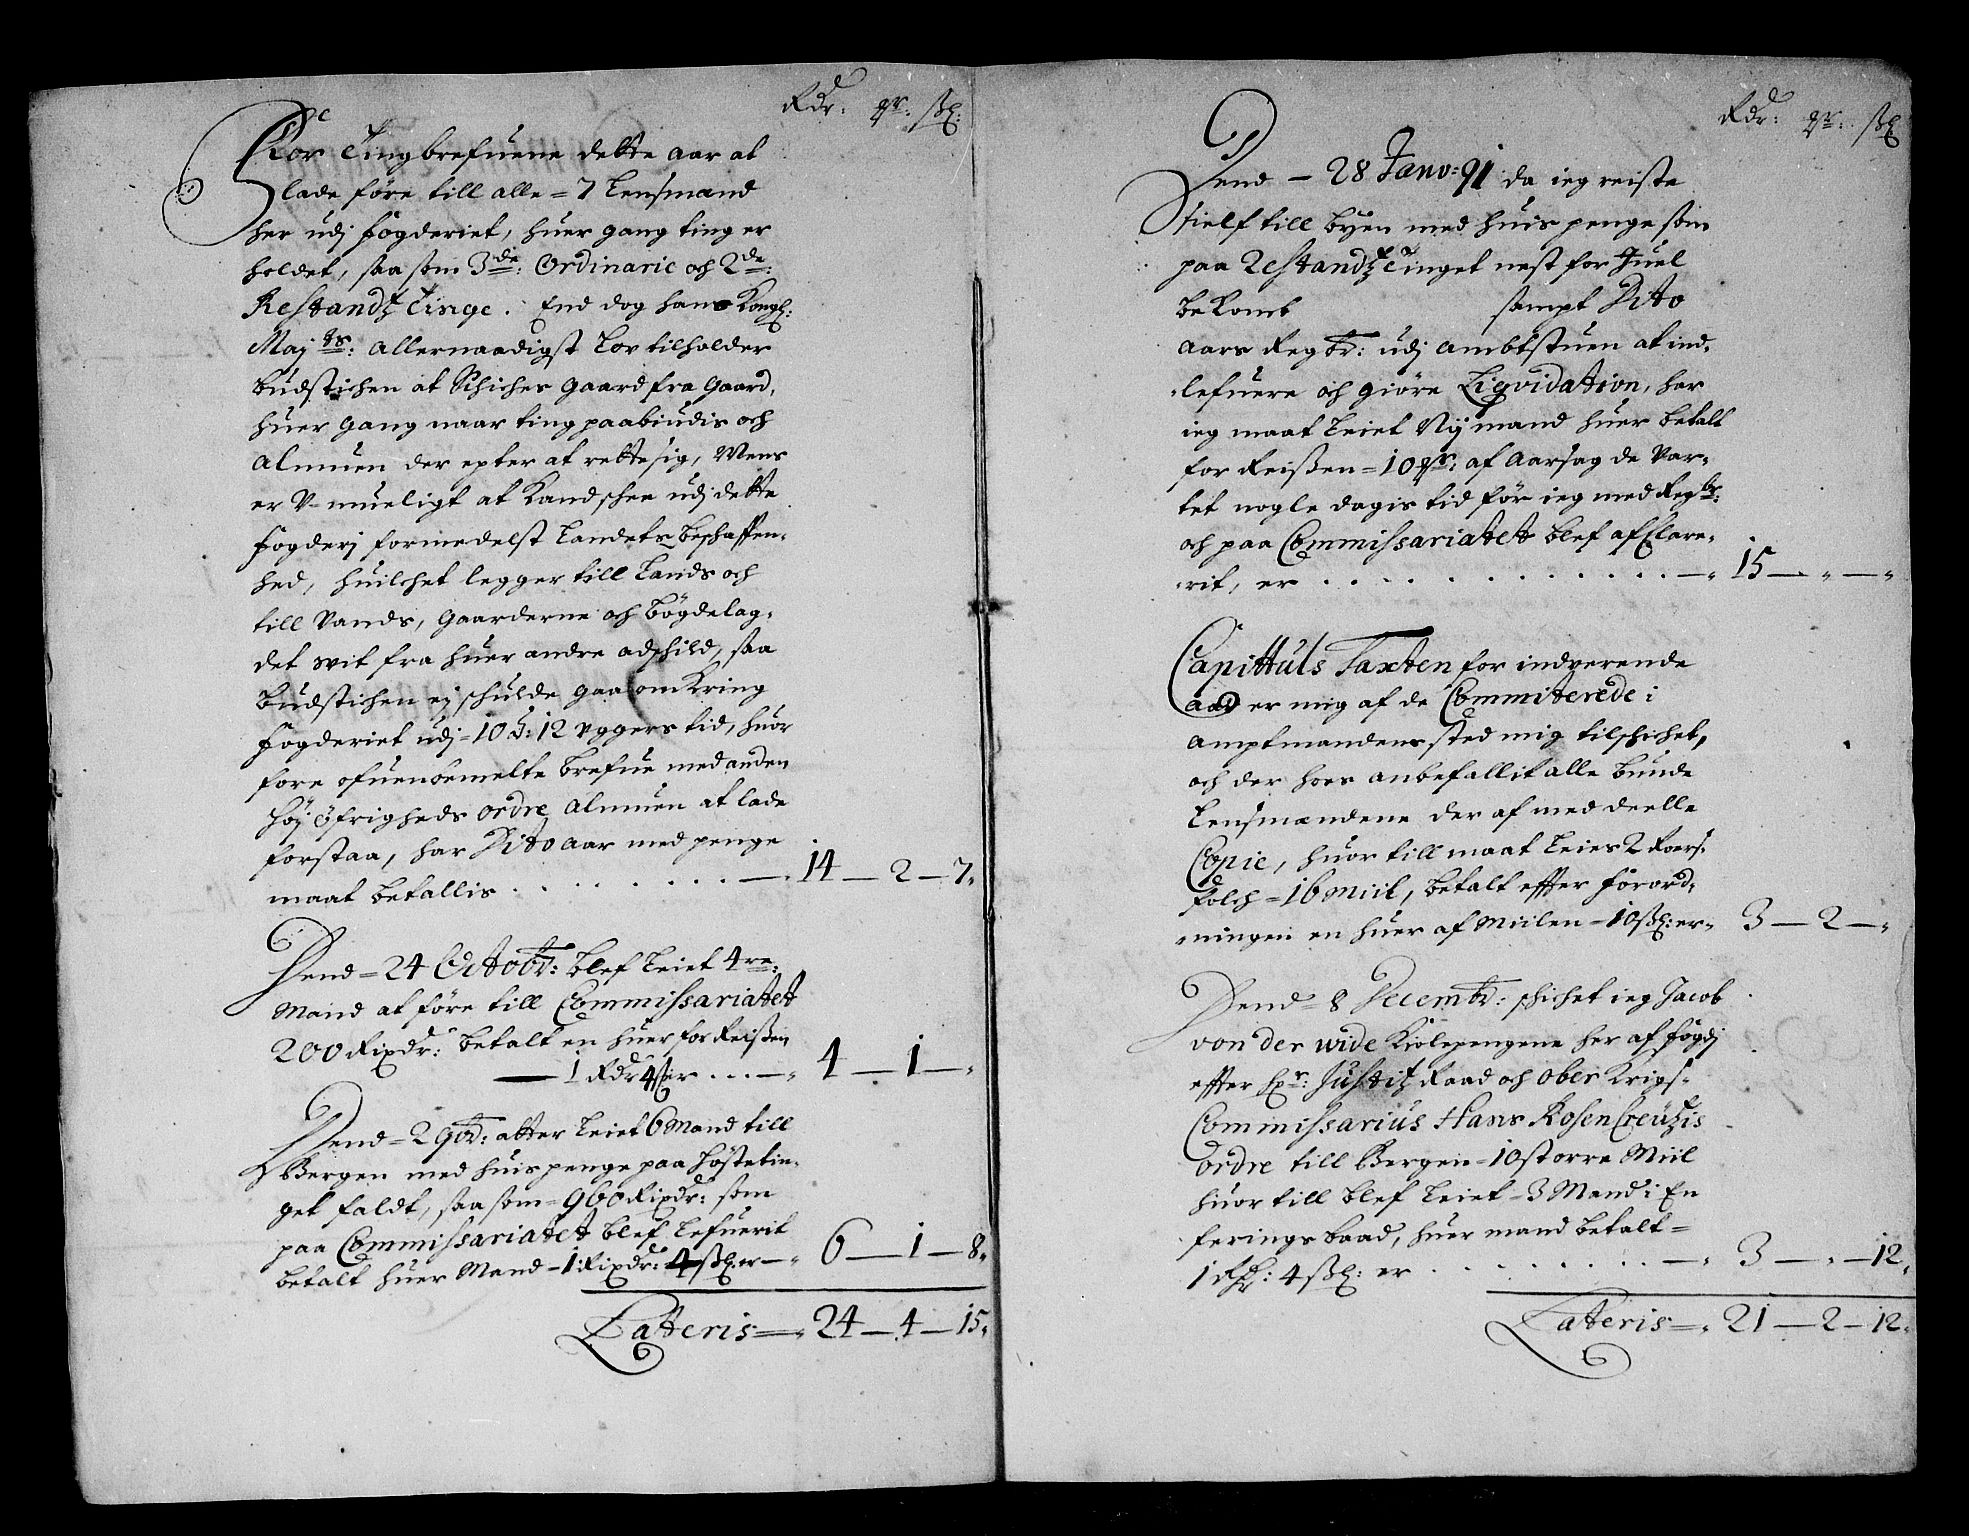 Rdr: ort: sk:
For Tingbrefuene dette aar at
lade føre till alle = 7 Lensmænd
her udj fogderiet, huer gang ting er
holdet, saa som 3de: Ordinarie och 2de:
Restandz Tinge. End dog hans Kongl:
Mayts: allernaadigst Lov tilholder
budstichen at schiches gaard fra gaard,
huer gang naar ting paabiudis och
almuen der epter at rette sig, Mens
er V-mueligt at Kand schee udj dette
fogderj formedelst Landets beschaffen-
hed, huilchet legger till Lands och
till Vands, gaarderne och bøgdelag-
det vit fra huer andre adschild, saa
budstichen ej schulde gaa om Kring
fogderiet udj = 10 à: 12 Vggers tid, huor
fore ofuenbemelte brefue med anden
høj øfrigheds ordre almuen at lade
forstaa, har Dito aar med penge
maat betallis . . . . . . . . — 14 — 2 — 7.
Dend = 24 Octobr: blef Leiet 4re:
Mand at føre till Commissariatet
200 Rixdr: betalt en huer for Reissen
— 1 Rdr 4 s er . . . — 4 — 1 —
Dend = 2 9br: atter Leiet 6 Mand till
Bergen med huis penge paa Høstetin-
get faldt, saa som = 960 Rixdr: som
paa Commissariatet blef Lefuerit
betalt huer Mand = 1 Rixdr: 4 sk: er — 6 — 1 — 8.
Lateris = 24 — 4 — 15.
Rdr: ort: sk
Dend — 28 Janv: 91 da ieg reiste
sielf till byen med huis penge som
paa Restandz Tinget nest for Juel
bekomb sampt Dito
aars Regbr: udj Ambtstuen at ind-
-lefuere och giøre Liqvidation, har
ieg maat Leiet Nij mand huer betalt
for Reissen = 10 ort: af aarsag de var-
tet nogle dagis tid før ieg med Regbr:
och paa Commissariatet blef af Clare-
-rit, er . . . . . . . . . . . . — 15 — „ — „
Capittuls Taxten for indverende
aar er mig af de Commiterede i
amptmandens sted mig tilschichet,
och der hoes anbefallit alle bunde
Lensmændene der af med deelle
Copie, huor till maat Leies 2 Roers-
folch = 16 Miil, betalt effter forord-
-ningen en huer af Miilen = 10 sk: er — 3 — 2 — „
Dend = 8 Decembr: schichet ieg Jacob
von der wide Kiolepengene her af fogdj
effter hr: Justitz Raad och ober Krigs-
Commissarius Hans Rosen Creützis
ordre till Bergen = 10 storre Miil
huor till blef Leiet = 3 Mand i En
ferings baad, huer mand betalt =
1 Rdr: 4 sk: er . . . . . . . . . — 3 — „ — 12.
Lateris = 21 — 2 — 12.